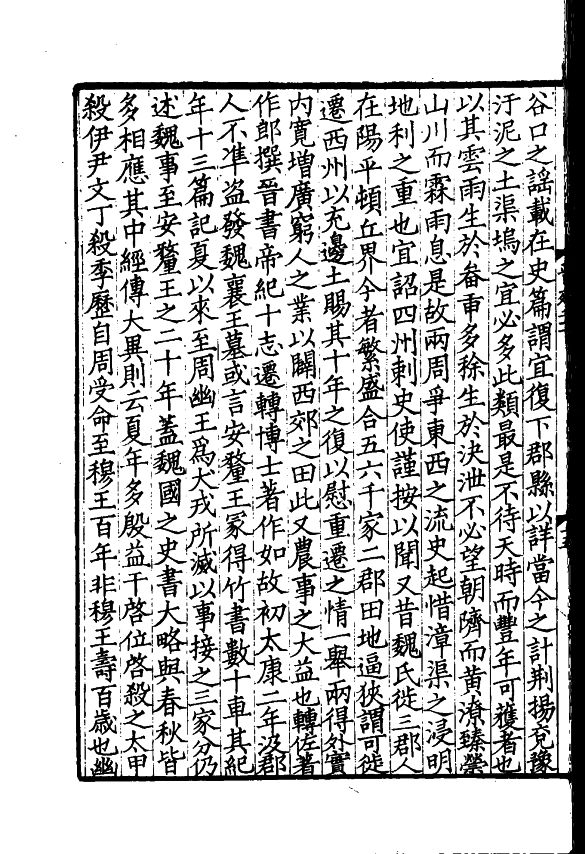 谷口之謡載在史篇謂宜復下郡縣以詳當今之計荆揚兗豫
汙泥之土渠塢之宜必多此類最是不待天時而豐年可獲者也
以其雲雨生於畚臿多稌生於决泄不必望朝隮而黄潦臻禜
山川而霖雨息是故兩周爭東西之流史起惜漳渠之浸明
地利之重也宜詔四州刺史使謹按以聞又昔魏氏徙三郡人
在陽平頓丘界今者繁盛合五六千家二郡田地逼狹謂可徙
遷西州以充邊土賜其十年之復以慰重遷之情一舉兩得外實
内寛增廣窮人之業以闢西郊之田此又農事之大益也轉佐著
作郎撰晉書帝紀十志遷轉博士著作如故初太康二年汲郡
人不凖盗發魏襄王墓或言安釐王冢得竹書數十車其紀
年十三篇記夏以來至周幽王爲犬戎所滅以事接之三家分仍
述魏事至安釐王之二十年蓋魏國之史書大略與春秋皆
多相應其中經傳大異則云夏年多殷益干啓位啓殺之太甲
殺伊尹文丁殺季歷自周受命至穆王百年非穆王壽百歳也幽